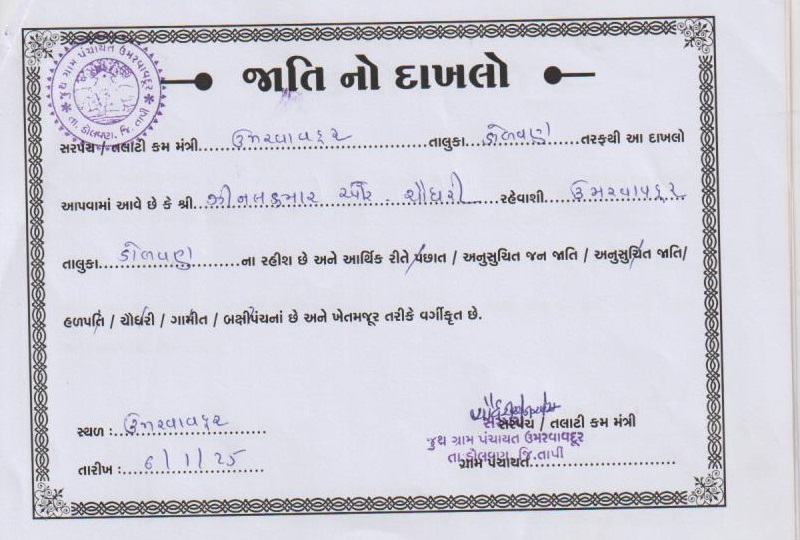 જુથ ગ્રામ પંચાયત ઉમરવાવદૂર
તા. ડોલવણ, જિ. તાપી
જાતિ નો દાખલો
સરપંચ / તલાટી કમ મંત્રી ઉમરવાવદુર તાલુકા ડોલવણ તરફથી આ દાખલો
આપવામાં આવે છે કે શ્રી. ઝીનલકુમાર ચૌધરી રહેવાશી ઉમરવાવદુર
તાલુકા ડોલવણ ના રહીશ છે અને આર્થિક રીતે પછાત / અનુસુચિત જન જાતિ / અનુસુચિત જાતિ/
હળપતિ / ચૌધરી / ગામીત / બક્ષીપંચનાં છે અને ખેતમજૂર તરીકે વર્ગીકૃત છે.
સ્થળ : ઉમરવાવદુર
તારીખ : 6/1/25
સરપંચ
સરપંચ / તલાટી કમ મંત્રી
જુથ ગ્રામ પંચાયત ઉમરવાવદૂર
તા. ડોલવણ, જિ.તાપી
ગ્રામ પંચાયત